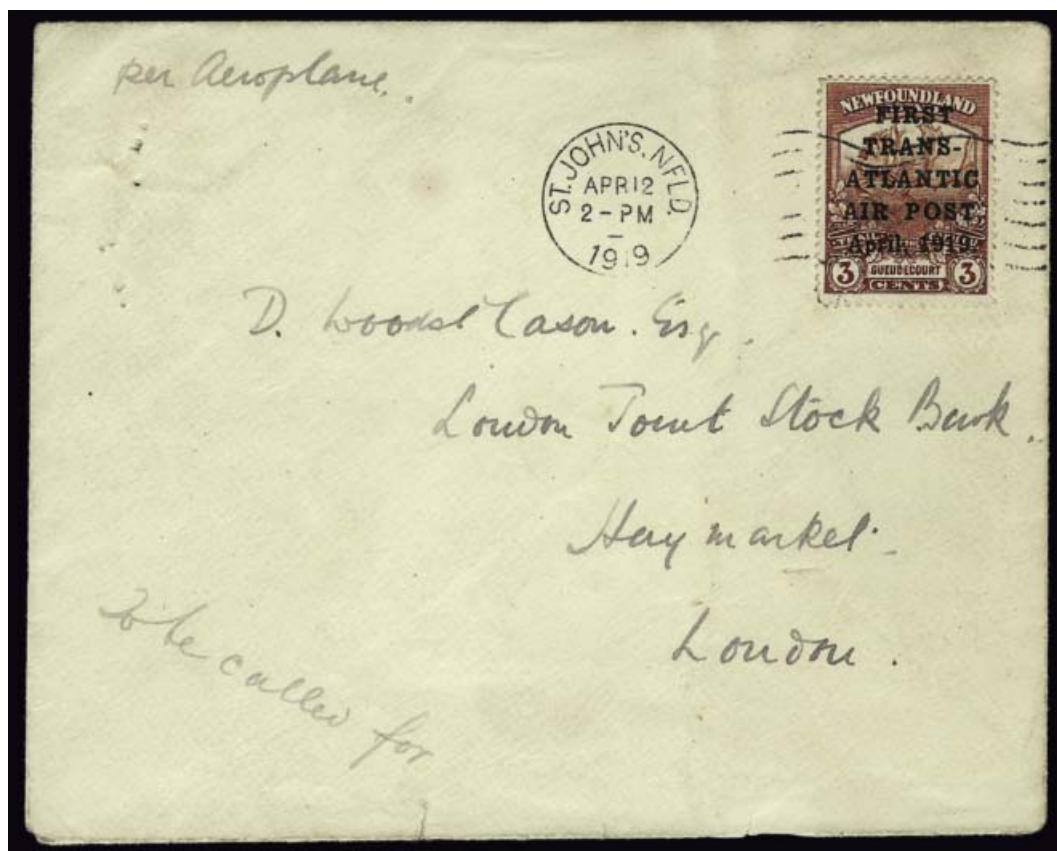 per Aeroplane.
ST. JOHN'S. NFLD.
APR 12
2 - PM
1919
NEWFOUNDLAND
FIRST
TRANS-
ATLANTIC
AIR POST,
April, 1919.
3 GUEUDECOURT 3
CENTS
D. Cason. Esq.
London Joint Stock Bank.
Haymarket.
London.
To be called for